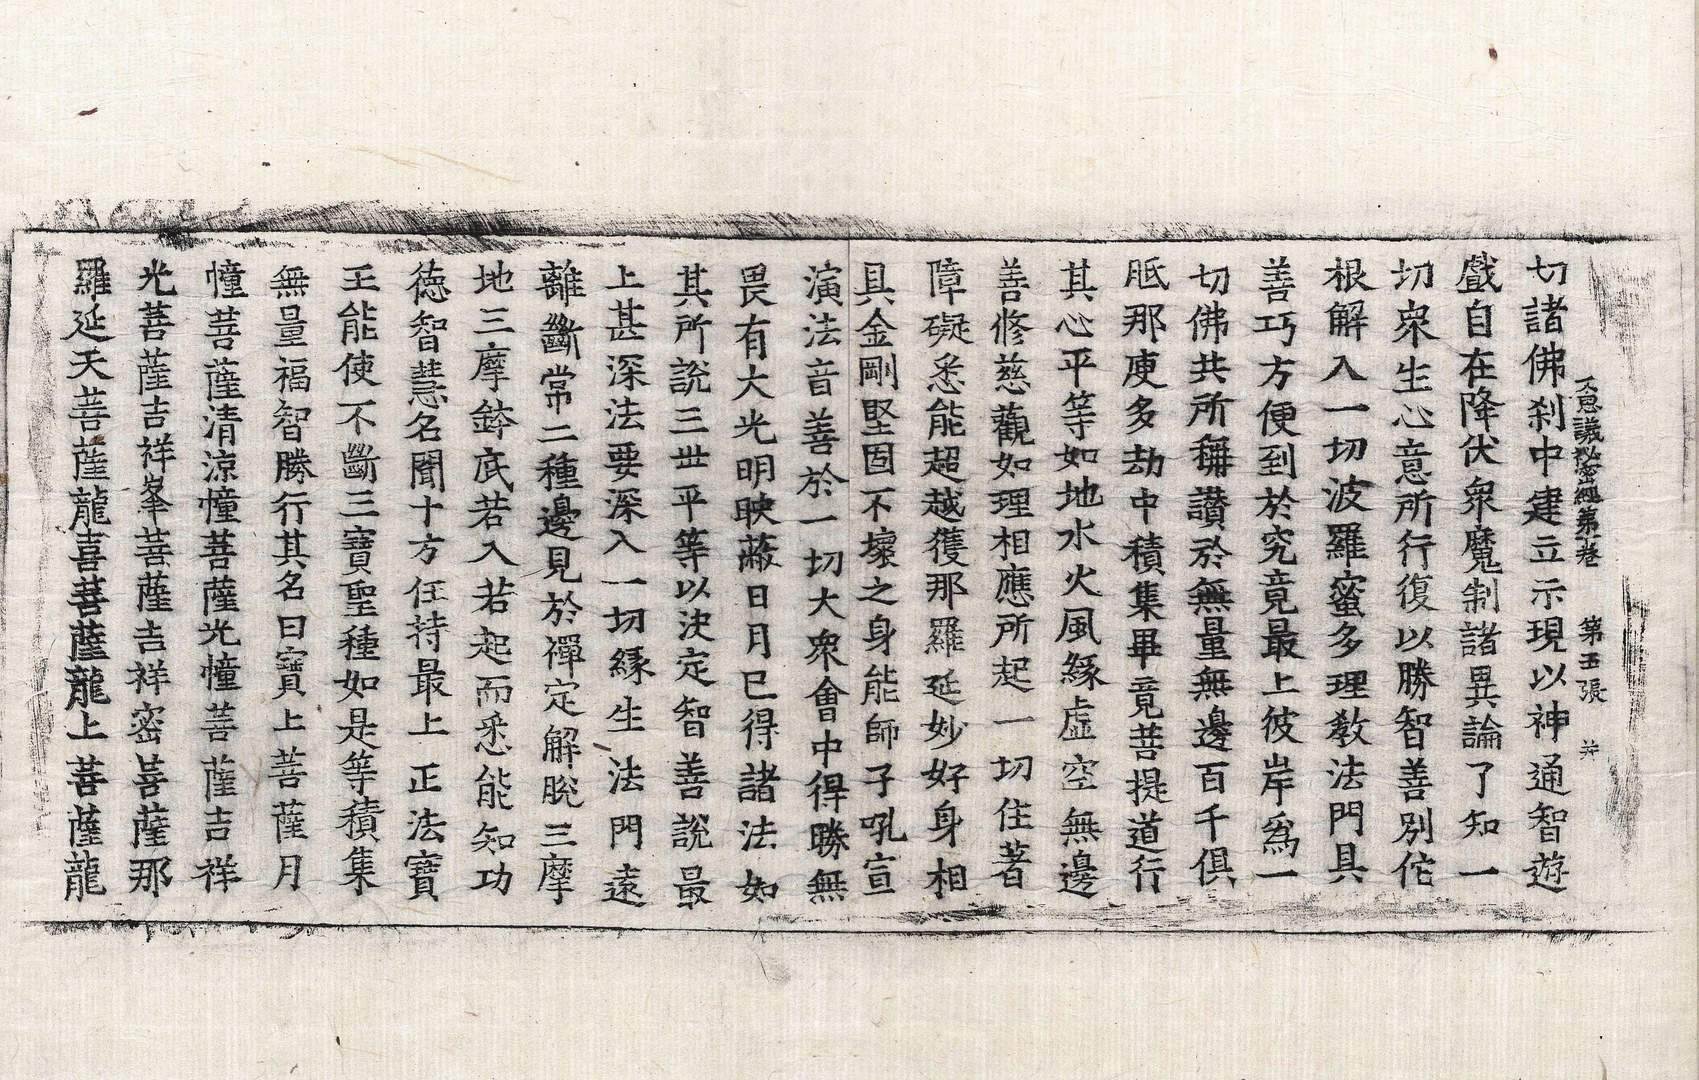 不思議秘密經第一卷 第五張 
切諸佛刹中建立示現以神通智遊
戲自在降伏衆魔制諸異論了知一
切衆生心意所行復以勝智善別佗
根解入一切波羅蜜多理教法門具
善巧方便到於究竟最上彼岸爲一
切佛共所稱讚於無量無邊百千俱
胝那庾多劫中積集畢竟菩提道行
其心平等如地水火風緣虛空無邊
善修慈觀如理相應所起一切住著
障礙悉能超越獲那羅延妙好身相
具金剛堅固不壞之身能師子吼宣
演法音善於一切大衆會中得勝無
畏有大光明映蔽日月已得諸法如
其所說三世平等以決定智善說最
上甚深法要深入一切緣生法門遠
離斷常二種邊見於禪定解脫三摩
地三摩鉢底若入若起而悉能知功
德智慧名聞十方任持最上正法寶
王能使不斷三寶聖種如是等積集
無量福智勝行其名曰寶上菩薩月
幢菩薩清涼幢菩薩光幢菩薩吉祥
光菩薩吉祥峯菩薩吉祥密菩薩那
羅延天菩薩龍喜菩薩龍上菩薩龍